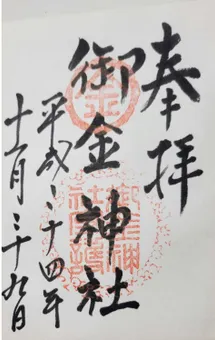 奉拝
御金神社
平成二十四年
十一月二十九日